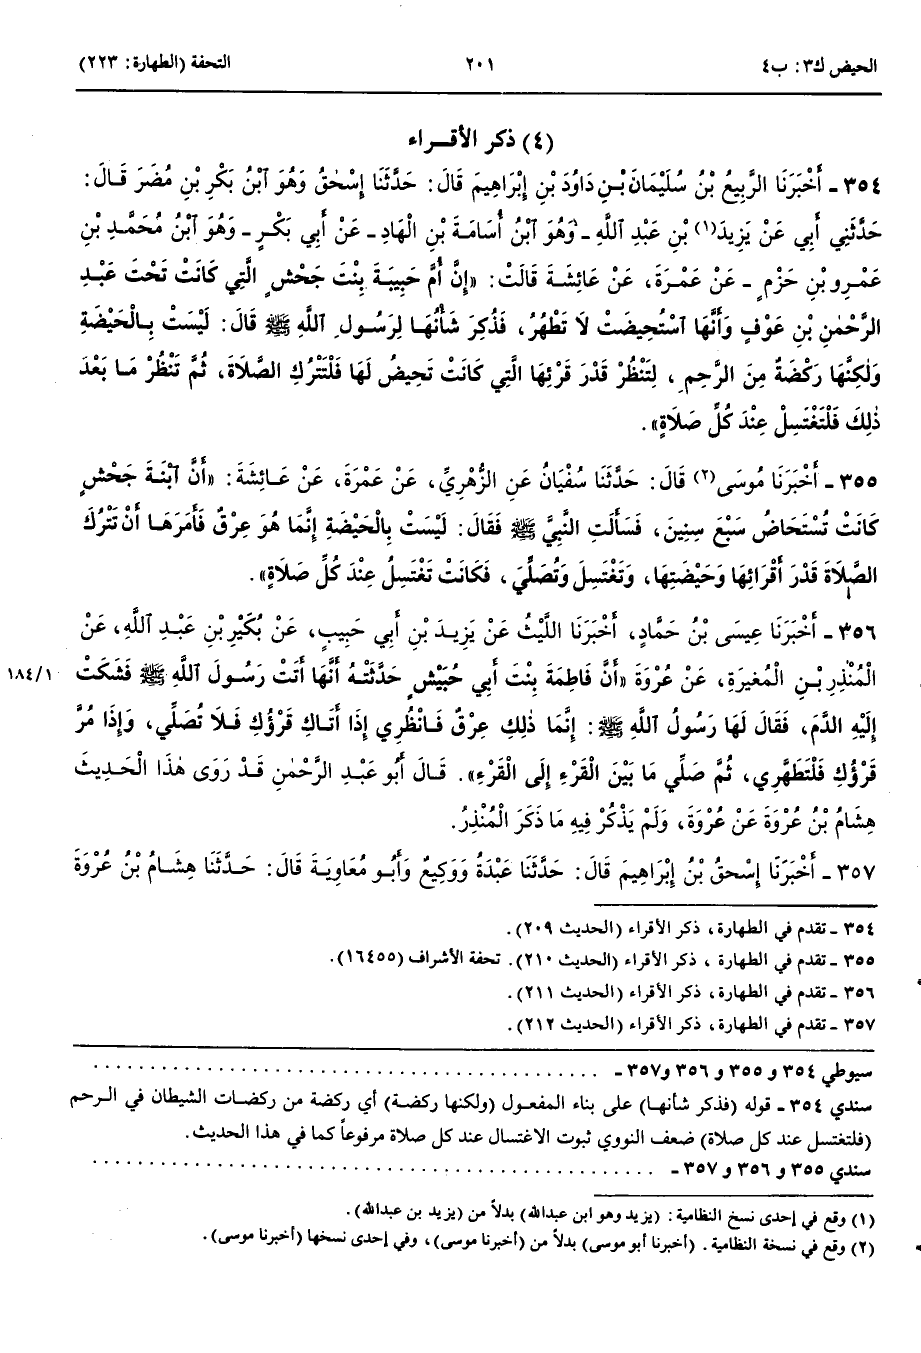 الحيض ك٣: ب٤ ٢٠١ التحفة (الطهارة: ٢٢٣)
(٤) ذكر الأقراء
٣٥٤ - أَخْبَرَنَا الرَّبِيعُ بْنُ سُلَيْمَانَ بْنِ دَاوُدَ بْنِ إِبْرَاهِيمَ قَالَ: حَدَّثَنَا إِسْحٰقُ وَهُوَ ٱبْنُ بَكْرِ بْنِ مُضَرَ قَالَ:
حَدَّثَنِي أَبِي عَنْ يَزِيدَ(١) بْنِ عَبْدِ ٱللَّهِ - وَهُوَ ٱبْنُ أُسَامَةَ بْنِ الْهَادِ - عَنْ أَبِي بَكْرٍ - وَهُوَ ٱبْنُ مُحَمَّدِ بْنِ
عَمْرِو بْنِ حَزْمٍ - عَنْ عَمْرَةَ، عَنْ عَائِشَةَ قَالَتْ: «إِنَّ أُمَّ حَبِيبَةَ بِنْتَ جَحْشٍ الَّتِي كَانَتْ تَحْتَ عَبْدِ
الرَّحْمٰنِ بْنِ عَوْفٍ وَأَنَّهَا ٱسْتُحِيضَتْ لَا تَطْهُرُ، فَذُكِرَ شَأْنُهَا لِرَسُولِ ٱللَّهِ ﷺ قَالَ: لَيْسَتْ بِالْحَيْضَةِ
وَلٰكِنَّهَا رَكْضَةٌ مِنَ الرَّحِمِ، لِتَنْظُرْ قَدْرَ قَرْئِهَا الَّتِي كَانَتْ تَحِيضُ لَهَا فَلْتَتْرُكِ الصَّلَاةَ، ثُمَّ تَنْظُرْ مَا بَعْدَ
ذٰلِكَ فَلْتَغْتَسِلْ عِنْدَ كُلِّ صَلَاةٍ».
٣٥٥ - أَخْبَرَنَا مُوسَى(٢) قَالَ: حَدَّثَنَا سُفْيَانُ عَنِ الزُّهْرِيِّ، عَنْ عَمْرَةَ، عَنْ عَائِشَةَ: «أَنَّ ٱبْنَةَ جَحْشٍ
كَانَتْ تُسْتَحَاضُ سَبْعَ سِنِينَ، فَسَأَلَتِ النَّبِيَّ ﷺ فَقَالَ: لَيْسَتْ بِالْحَيْضَةِ إِنَّمَا هُوَ عِرْقٌ فَأَمَرَهَا أَنْ تَتْرُكَ
الصَّلَاةَ قَدْرَ أَقْرَائِهَا وَحَيْضَتِهَا، وَتَغْتَسِلَ وَتُصَلِّيَ، فَكَانَتْ تَغْتَسِلُ عِنْدَ كُلِّ صَلَاةٍ».
٣٥٦ - أَخْبَرَنَا عِيسَى بْنُ حَمَّادٍ، أَخْبَرَنَا اللَّيْثُ عَنْ يَزِيدَ بْنِ أَبِي حَبِيبٍ، عَنْ بُكَيْرِ بْنِ عَبْدِ ٱللَّهِ، عَنْ
الْمُنْذِرِ بْنِ الْمُغِيرَةِ، عَنْ عُرْوَةَ «أَنَّ فَاطِمَةَ بِنْتَ أَبِي حُبَيْشٍ حَدَّثَتْهُ أَنَّهَا أَتَتْ رَسُولَ ٱللَّهِ ﷺ فَشَكَتْ ١٨٤/١
إِلَيْهِ الدَّمَ، فَقَالَ لَهَا رَسُولُ ٱللَّهِ ﷺ: إِنَّمَا ذٰلِكِ عِرْقٌ فَانْظُرِي إِذَا أَتَاكِ قَرْؤُكِ فَلَا تُصَلِّي، وَإِذَا مُرَّ
قَرْؤُكِ فَلْتَطَهَّرِي، ثُمَّ صَلِّي مَا بَيْنَ الْقَرْءِ إِلَى الْقَرْءِ». قَالَ أَبُو عَبْدِ الرَّحْمٰنِ قَدْ رَوَى هٰذَا الْحَدِيثَ
هِشَامُ بْنُ عُرْوَةَ عَنْ عُرْوَةَ، وَلَمْ يَذْكُرْ فِيهِ مَا ذَكَرَ الْمُنْذِرُ.
٣٥٧ - أَخْبَرَنَا إِسْحٰقُ بْنُ إِبْرَاهِيمَ قَالَ: حَدَّثَنَا عَبْدَةُ وَوَكِيعٌ وَأَبُو مُعَاوِيَةَ قَالَ: حَدَّثَنَا هِشَامُ بْنُ عُرْوَةَ
٣٥٤ - تقدم في الطهارة، ذكر الأقراء (الحديث ٢٠٩).
٣٥٥ - تقدم في الطهارة، ذكر الأقراء (الحديث ٢١٠). تحفة الأشراف (١٦٤٥٥).
٣٥٦ - تقدم في الطهارة، ذكر الأقراء (الحديث ٢١١).
٣٥٧ - تقدم في الطهارة، ذكر الأقراء (الحديث ٢١٢).
سيوطي ٣٥٤ و ٣٥٥ و ٣٥٦ و٣٥٧ - . . . . . . . . . . . . . . . . . . . .
سندي ٣٥٤ - قوله (فذكر شأنها) على بناء المفعول (ولكنها ركضة) أي ركضة من ركضات الشيطان في الرحم
(فلتغتسل عند كل صلاة) ضعف النووي ثبوت الاغتسال عند كل صلاة مرفوعاً كما في هذا الحديث.
سندي ٣٥٥ و ٣٥٦ و ٣٥٧ - . . . . . . . . . . . . . . . . . . . .
(١) وقع في إحدى نسخ النظامية: (يزيد وهو ابن عبدالله) بدلاً من (يزيد بن عبدالله).
(٢) وقع في نسخة النظامية. (أخبرنا أبو موسى) بدلاً من (أخبرنا موسى)، وفي إحدى نسخها (أخبرنا موسى).